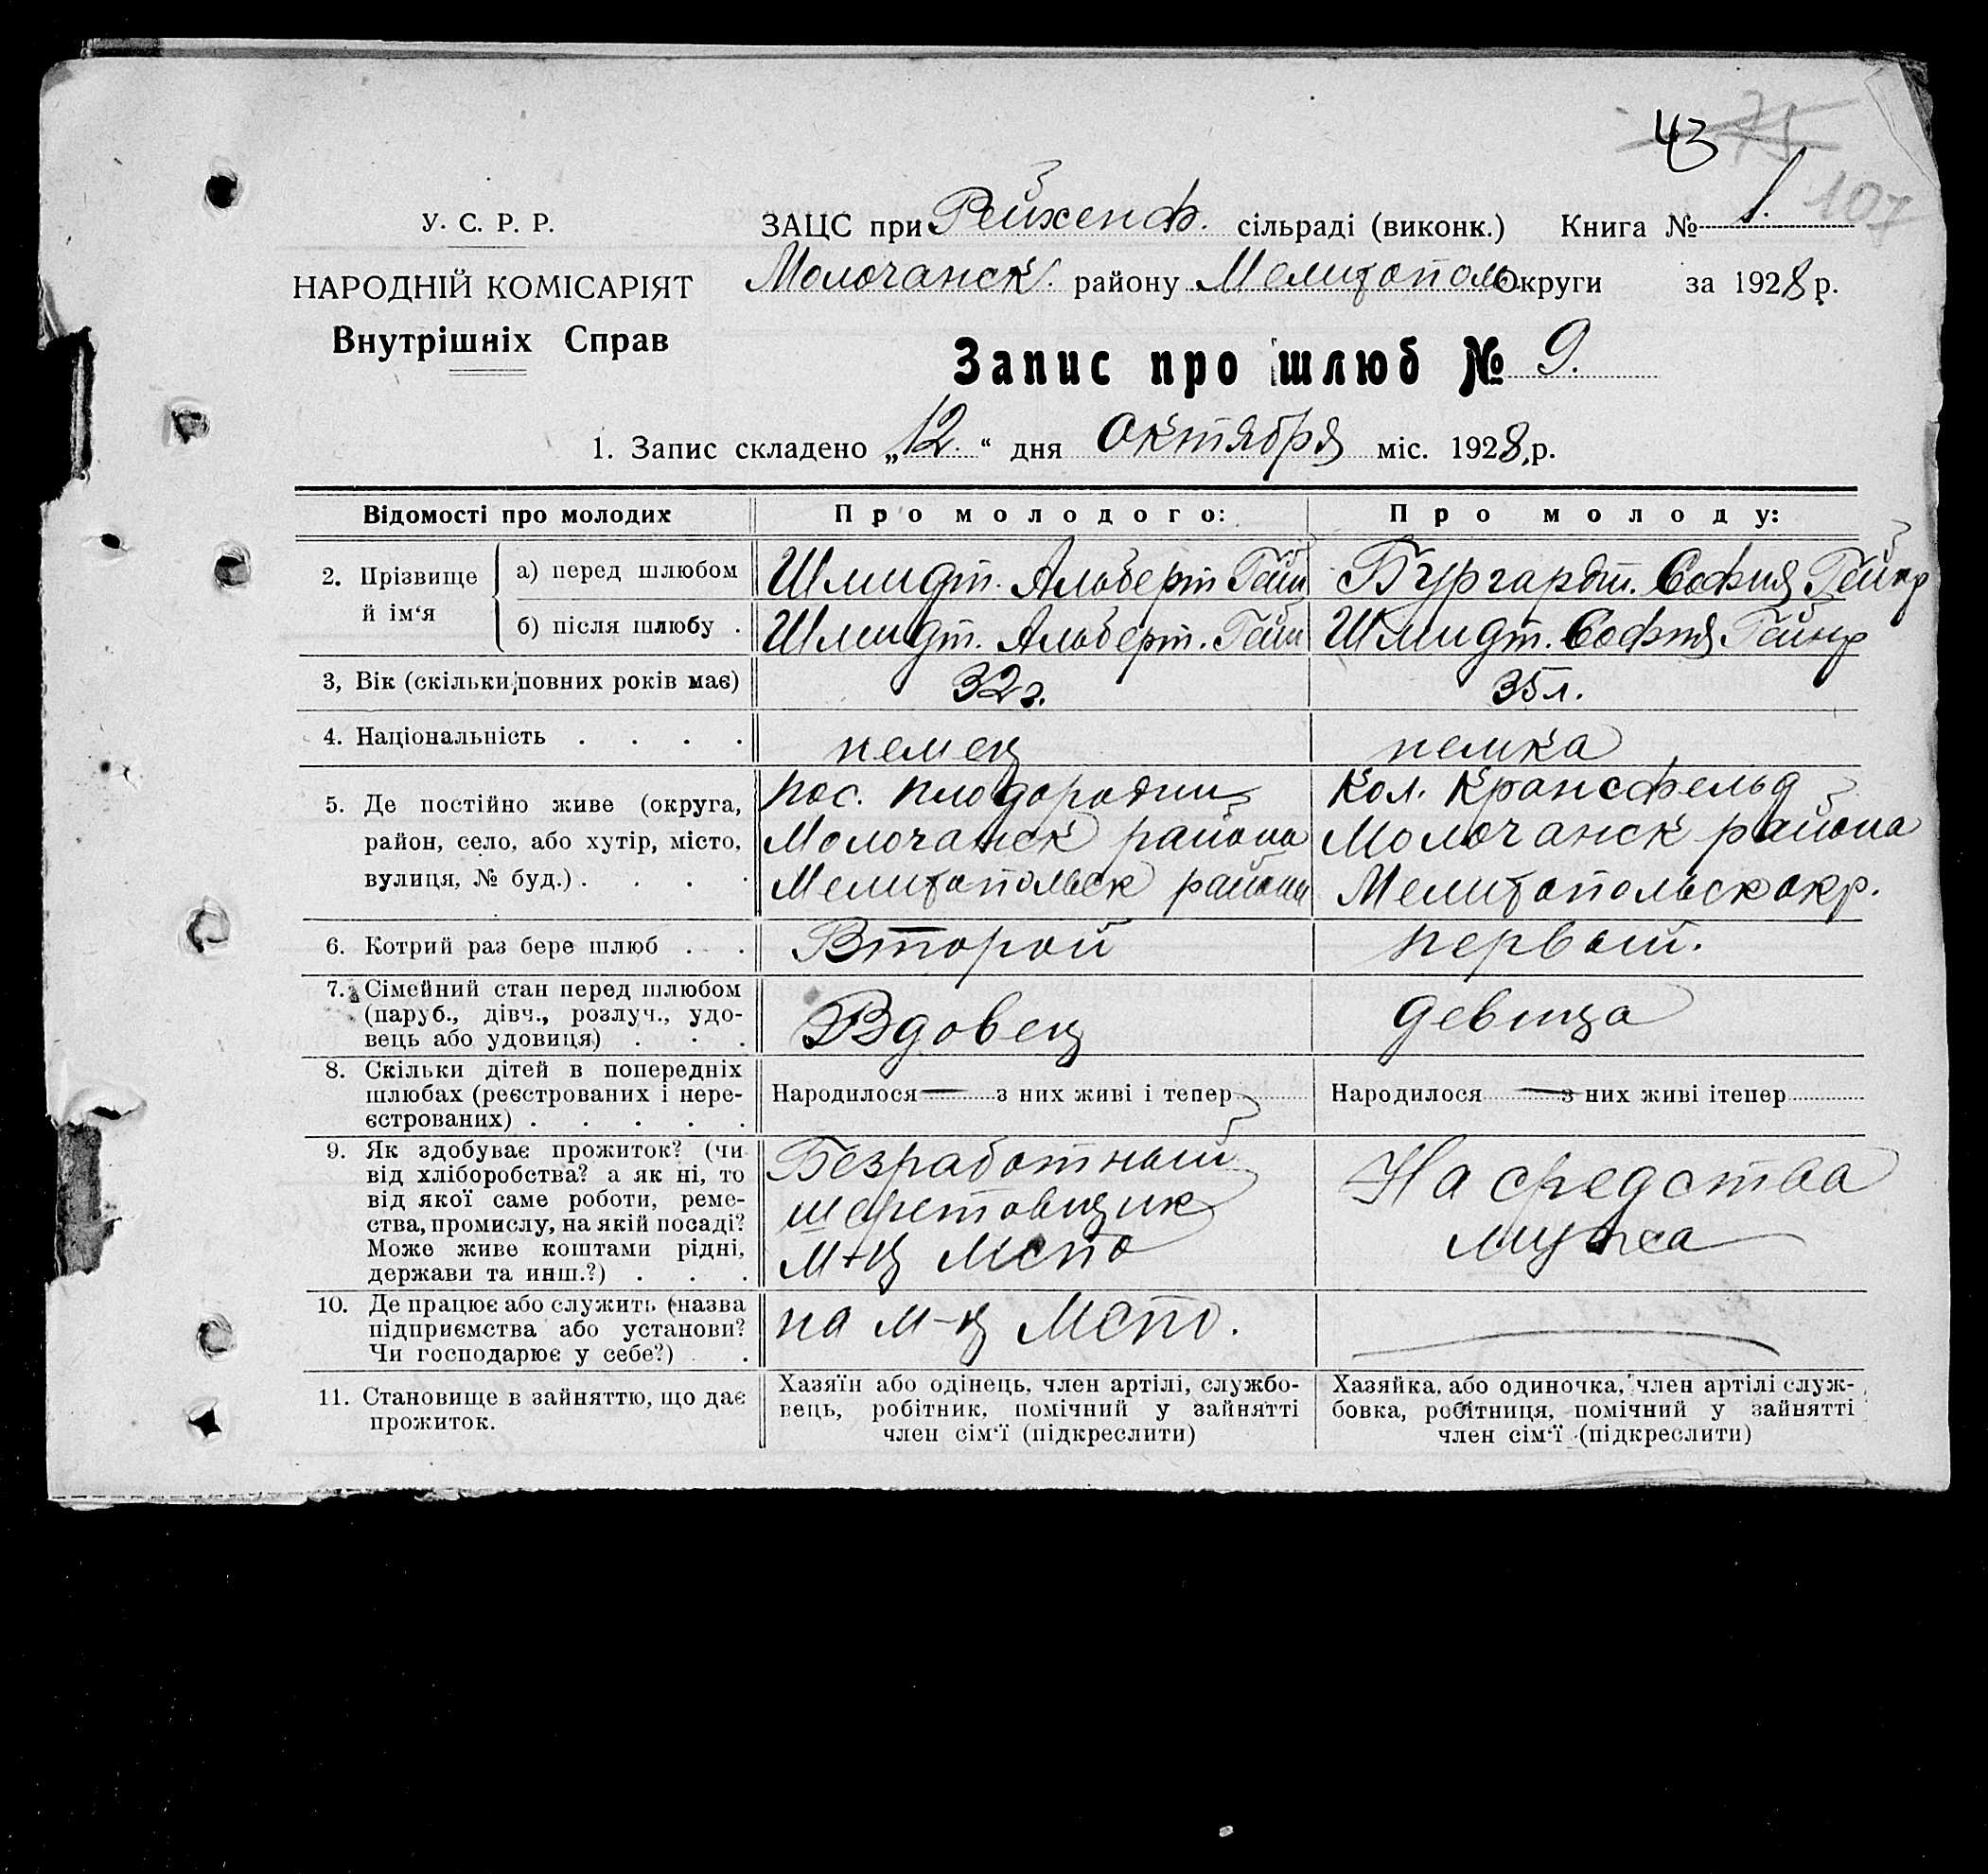 43 75
107
У. С. Р. Р.
НАРОДНІЙ КОМІСАРІЯТ
Внутрішніх Справ
ЗАЦС при Рейхенф. сільраді (виконк.) Книга № 1.
Молочанск. району Мелитополь Округи за 1928 р.
Запис про шлюб № 9.
1. Запис складено „12.“ дня Октября міс. 1928, р.
Відомості про молодих
Про молодого:
Про молоду:
2. Прізвище й ім‘я
а) перед шлюбом
Шмидт. Альберт Гейн
Бургардт. София Гейнр
б) після шлюбу .
Шмидт. Альберт. Гейн
Шмидт. София Гейнр
3, Вік (скільки повних років має)
32 г.
35 л.
4. Національність . . . .
немец
немка
5. Де постійно живе (округа,
район, село, або хутір, місто,
вулиця, № буд.) . . . .
пос. Плодородний
Молочанск района
Мелитопольск района
Кол. Крансфельд
Молочанск района
Мелитопольск окр.
6. Котрий раз бере шлюб . . .
Второй
первый.
7. Сімейний стан перед шлюбом
(паруб., дівч., розлуч., удо-
вець або удовиця) . . .
Вдовец
девица
8. Скільки дітей в попередніх
шлюбах (реєстрованих і нере-
єстрованих) . . . . .
Народилося — з них живі і тепер
Народилося — з них живі ітепер
9. Як здобуває прожиток? (чи
від хліборобства? а як ні, то
від якої саме роботи, реме-
ства, промислу, на якій посаді?
Може живе коштами рідні,
держави та инш.?) . . .
Безработный
шеретовщик
М-ц Мспо
На средства
мужа
10. Де працює або служить (назва
підприємства або установи?
Чи господарює у себе?) .
на м-ц Мспо.
11. Становище в зайняттю, що дає
прожиток.
Хазяїн або одінець, член артілі, службо-
вець, робітник, помічний у зайнятті
член сім‘ї (підкреслити)
Хазяйка, або одиночка, член артілі служ-
бовка, робітниця, помічний у зайнятті
член сім‘ї (підкреслити)